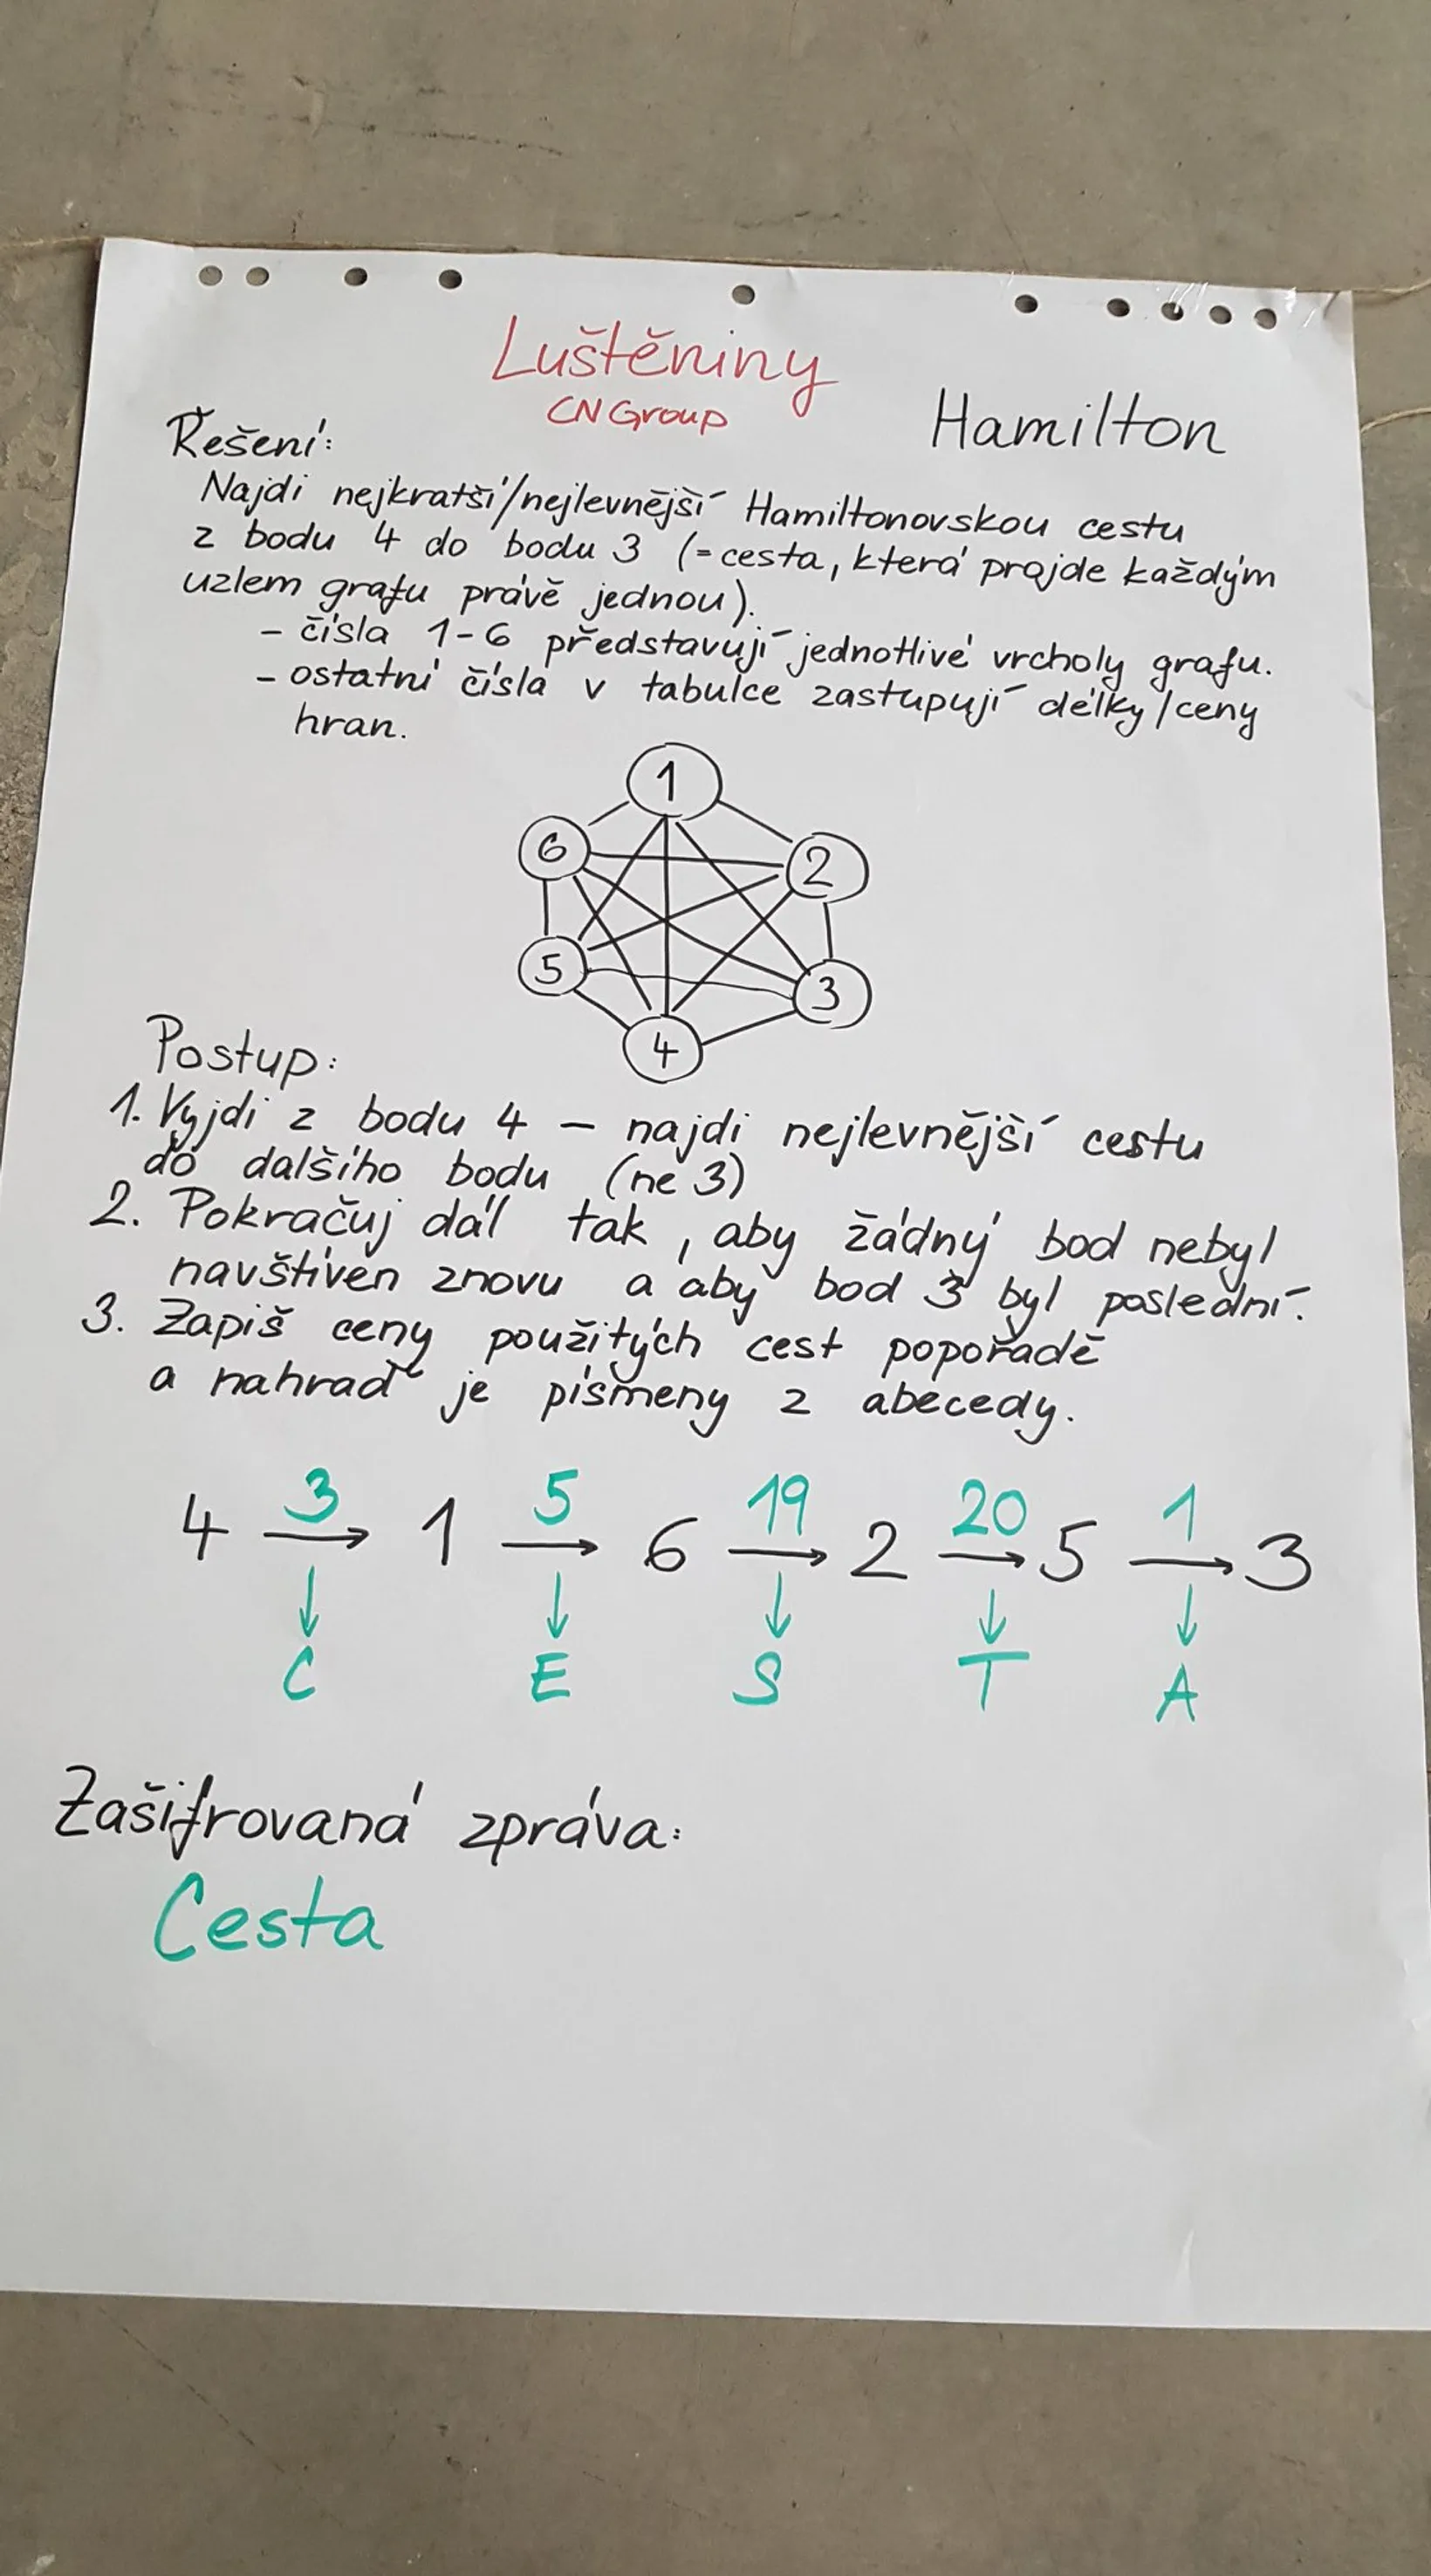 Luštěniny
CN Group
Hamilton
Řešení:
Najdi nejkratší/nejlevnější Hamiltonovskou cestu
z bodu 4 do bodu 3 (=cesta, která projde každým
uzlem grafu právě jednou).
- čísla 1-6 představují jednotlivé vrcholy grafu.
- ostatní čísla v tabulce zastupují délky/ceny
hran.
1
6
2
5
3
4
Postup:
1. Vyjdi z bodu 4 – najdi nejlevnější cestu
do dalšího bodu (ne 3)
2. Pokračuj dál tak, aby žádný bod nebyl
navštíven znovu a aby bod 3 byl poslední.
3. Zapiš ceny použitých cest popořadě
a nahraď je písmeny z abecedy.
3 5 19 20 1
4 → 1 → 6 → 2 → 5 → 3
↓ ↓ ↓ ↓ ↓
C E S T A
Zašifrovaná zpráva:
Cesta